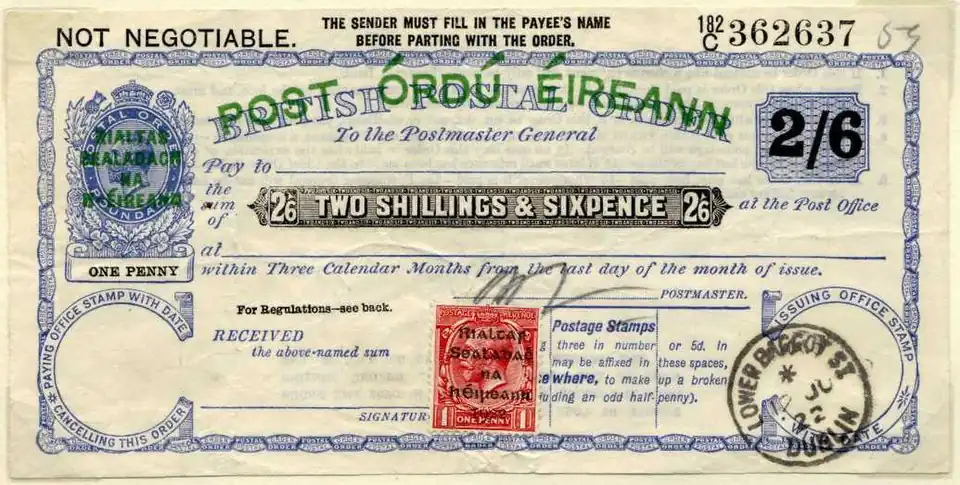 NOT NEGOTIABLE.
THE SENDER MUST FILL IN THE PAYEE'S NAME
BEFORE PARTING WITH THE ORDER.
182/C 362637
POST ÓRDÚ ÉIREANN
BRITISH POSTAL ORDER
To the Postmaster General
2/6
POSTAL ORDER
POUNDAGE
RIALTAS
SEALADACH
NA
hÉIREANN
ONE PENNY
Pay to
the
sum
of
2/6 TWO SHILLINGS & SIXPENCE 2/6
at the Post Office
at
within Three Calendar Months from the last day of the month of issue.
POSTMASTER.
For Regulations—see back.
PAYING OFFICE STAMP WITH DATE
CANCELLING THIS ORDER
RECEIVED
the above-named sum
SIGNATUR
POSTAGE REVENUE
Rialtas
Sealadaċ
na
hÉireann
1922
1 ONE PENNY 1
Postage Stamps
three in number or 5d. in
may be affixed in these spaces,
where, to make up a broken
uding an odd half-penny).
ISSUING OFFICE STAMP
DATE
LOWER BAGGOT ST
JU
22
DUBLIN